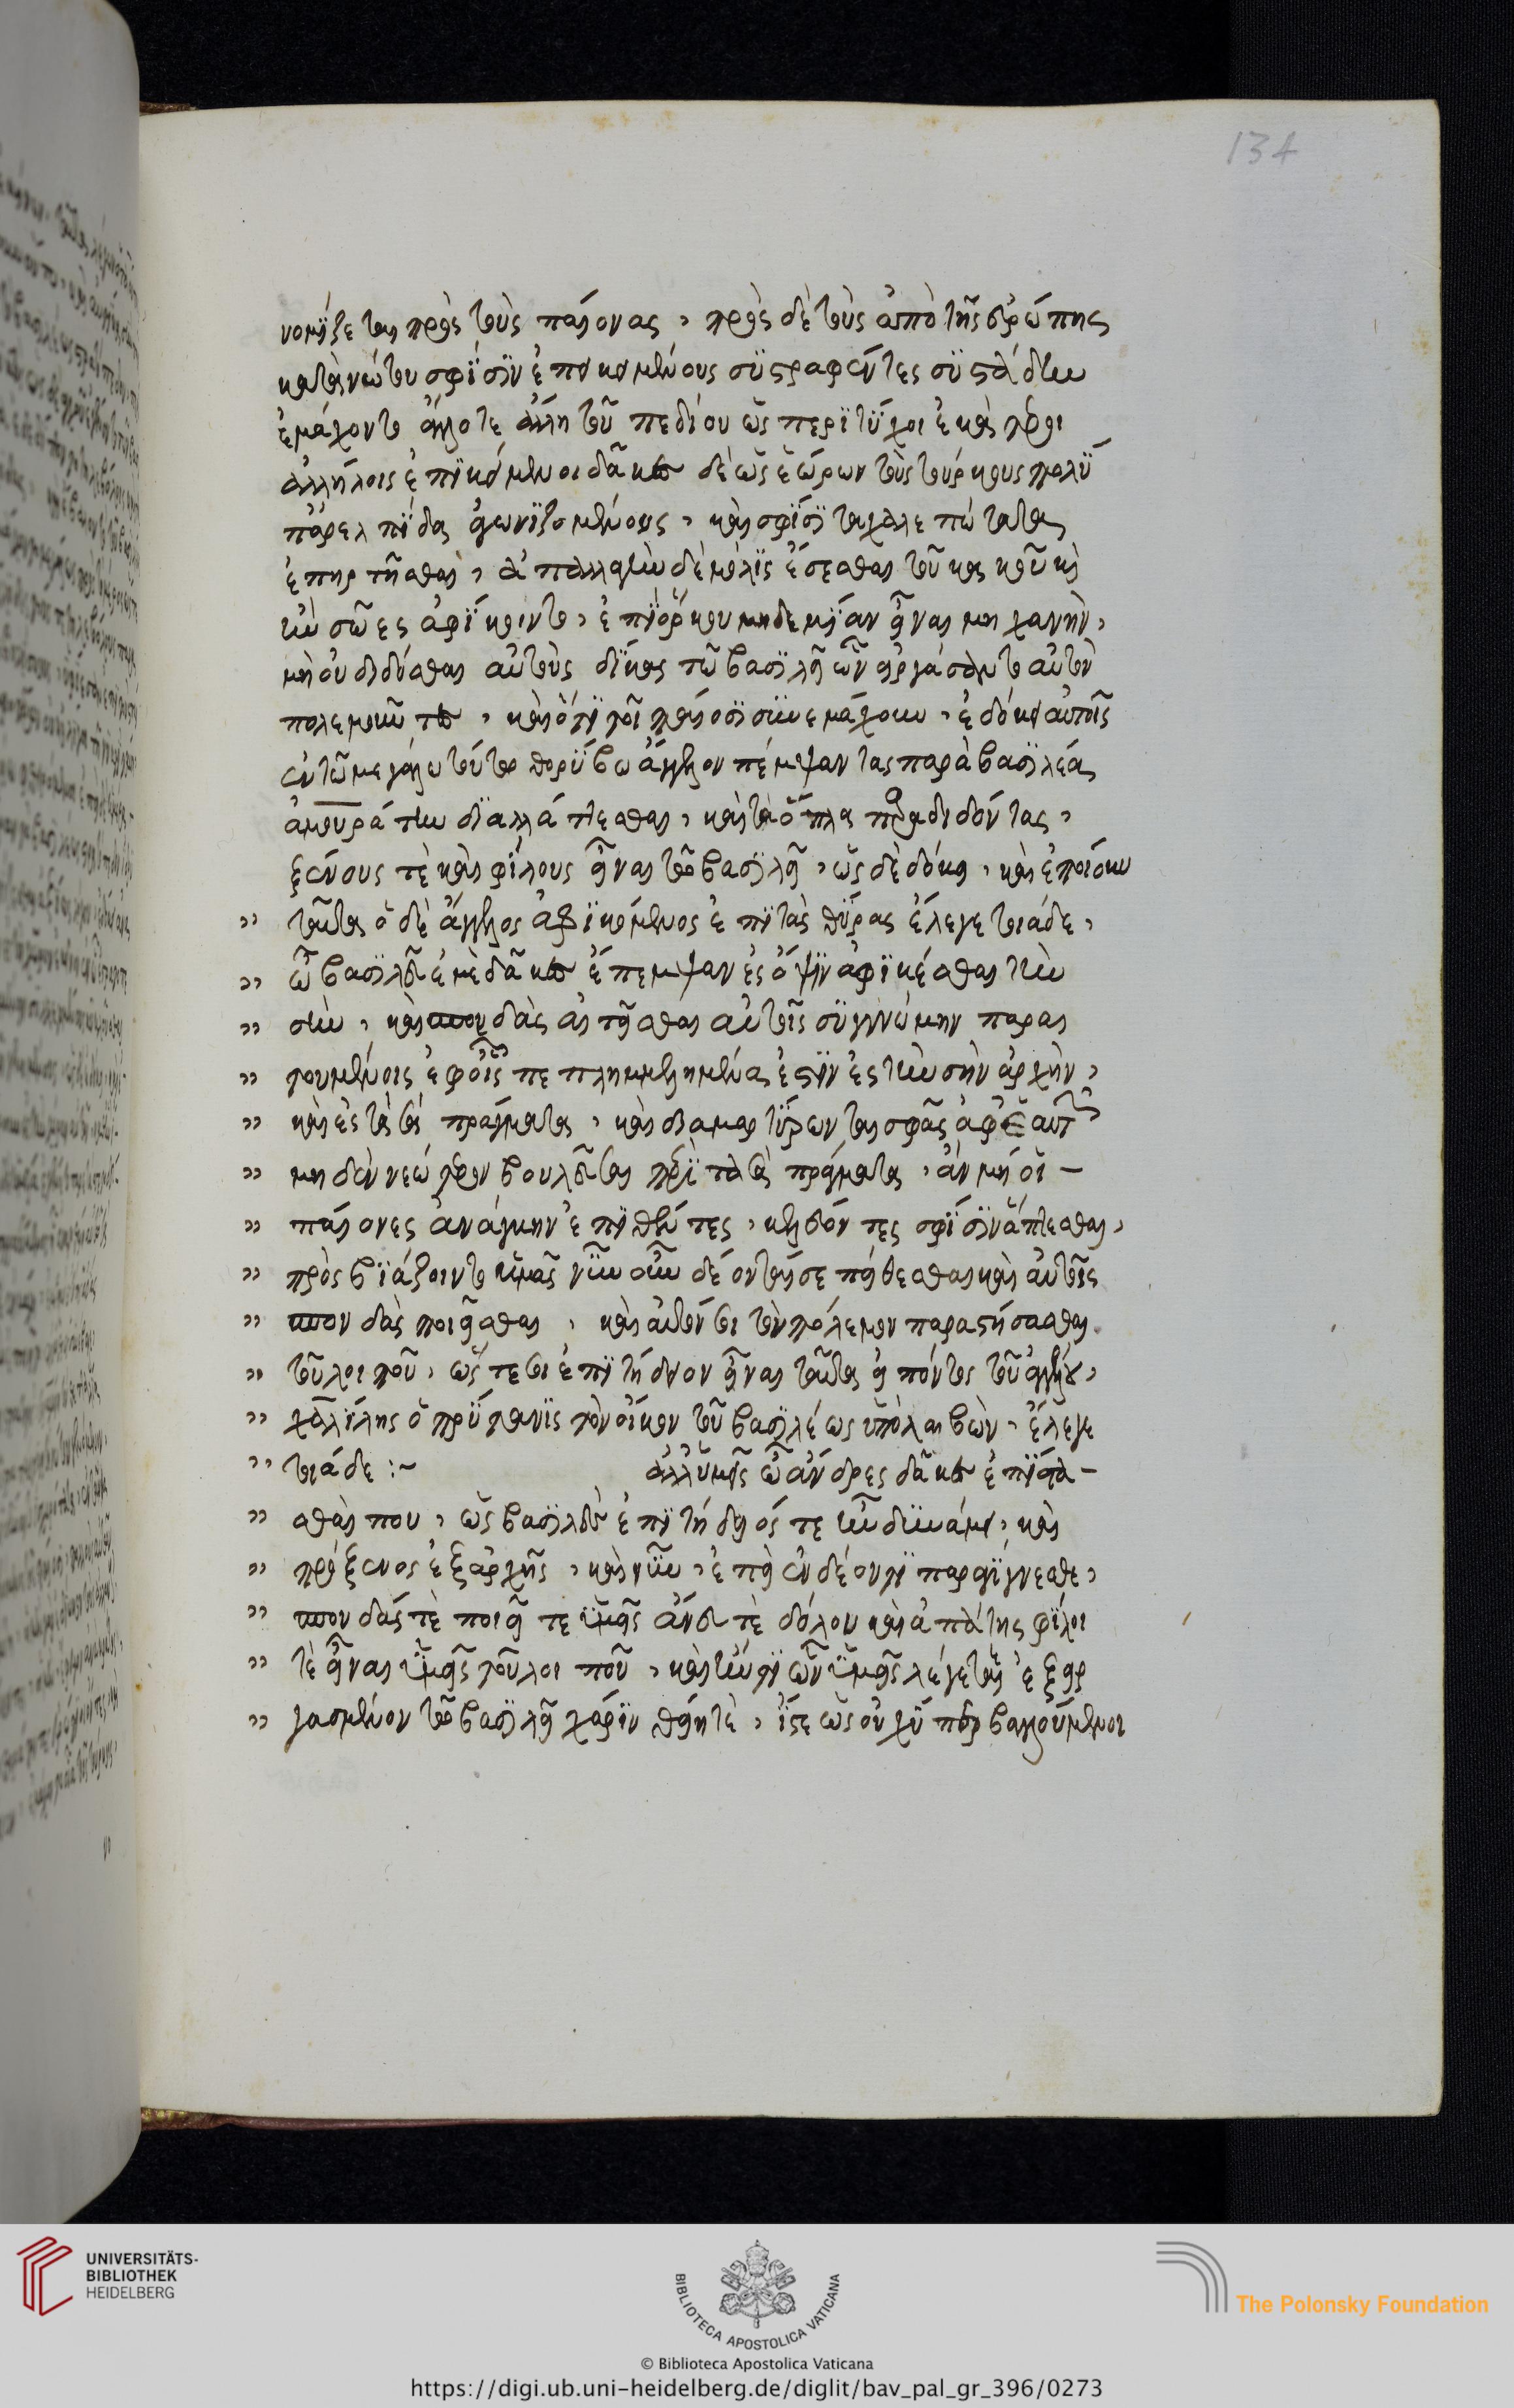 νομίζεται πρὸς τοὺς παίονας, πρὸς δὲ τοὺς ἀπὸ τῆς εὐρώπης
κατὰ νώτου σφίσιν ἐπικειμένους συστραφέντες συστάδην
ἐμάχοντο ἄλλοτε ἄλλη τοῦ πεδίου ὡς περιτύχοι ἑκάτεροι
ἀλλήλοις ἐπικείμενοι δᾶκες δὲ ὡς ἑώρων τοὺς τούρκους πολὺ
παρελπίδα ἀγωνιζομένους, καὶ σφίσι τὰ χαλεπώτατα
ἐπηρτῆσθαι, ἀπαλλαγὴν δὲ μόλις ἔσεσθαι τοῦ κακοῦ κἂν
ἢν σῶες ἀφίκοιντο, ἐπ' οἴκου μηδεμίαν εἶναι μηχανὴν,
μὴ οὐ διδόσθαι αὐτοὺς δίκας τῶ βασιλεῖ ὧν εἰργάσαντο αὐτὸν
πολεμοῦντες, καὶ ὅτι τοῖς παίοσι συνεμάχουν, ἐδόκει αὐτοῖς
ἐν τῶ μεγάλω τούτω θορύβω ἄγγελον πέμψαντας παρὰ βασιλέα
ἀμουράτην διαλλάττεσθαι, καὶ τὰ ὅπλα παραδιδόντας,
ξένους τὲ καὶ φίλους εἶναι τῶ βασιλεῖ, ὡς δὲ δόκει, καὶ ἐποίουν
" ταῦτα ὁ δὲ ἄγγελος ἀφικόμενος ἐπὶ τὰς θύρας ἔλεγε τοιάδε,
" ὦ βασιλεῦ ἐμὲ δᾶκες ἔπεμψαν ἐς ὄψιν ἀφικέσθαι τὴν
" σὴν, καὶ σπονδὰς αἰτεῖσθαι αὐτοῖς συγγνώμην παραι
" τουμένοις ἐφ' οἷς πεπλημμελημένα ἐστὶν ἐς τὴν σὴν ἀρχὴν,
" καὶ ἐς τὰ σὰ πράγματα, καὶ διαμαρτύρονται σφᾶς ἀφ' ἑαυτῶν
" μηδὲν νεώτερον βουλεῦσαι περὶ τὰ σὰ πράγματα, ἂν μὴ οἱ –
" παίονες ἀνάγκην ἐπιθέντες, κελεύοντες σφίσιν ἅπτεσθαι,
" πρὸς βιάζοιντο ἡμᾶς νῦν οὖν δέονταί σε πείθεσθαι καὶ αὐτοῖς
" σπονδὰς ποιεῖσθαι, καὶ αὐτόν σοι τὸν πόλεμον παραστήσασθαι
" τοῦ λοιποῦ, ὥς τε σοι ἐπιτήδειον εἶναι ταῦτα εἰπόντος τοῦ ἀγγέλου,
" χαλίλης ὁ πρύτανις τὸν οἶκον τοῦ βασιλέως ὑπολαβὼν, ἔλεγε
" τοιάδε :~ ἀλλ' ὑμεῖς ὦ ἄνδρες δᾶκες ἐπίστα –
" σθαί που, ὡς βασιλεὺς ἐπιτήδειός τε ἦν δυνάμει, καὶ
" πρόξενος ἐξ ἀρχῆς, καὶ νῦν, ἐπεὶ ἐν δέοντι παραγίγνεσθε,
" σπονδάς τὲ ποιεῖτε ὑμεῖς ἄνευ τὲ δόλου καὶ ἀπάτης φίλοι
" τὲ εἶναι ὑμᾶς τοῦ λοιποῦ, καὶ ἤν τι ὧν ὑμεῖς λέγεται ἐξειρ
" γασμένον τῶ βασιλεῖ χάριν θείητε, ἴστε ὡς οὐχ ὑπερβαλλούμενοι
134
UNIVERSITÄTS-
BIBLIOTHEK
HEIDELBERG
BIBLIOTECA APOSTOLICA VATICANA
The Polonsky Foundation
© Biblioteca Apostolica Vaticana
https://digi.ub.uni-heidelberg.de/diglit/bav_pal_gr_396/0273